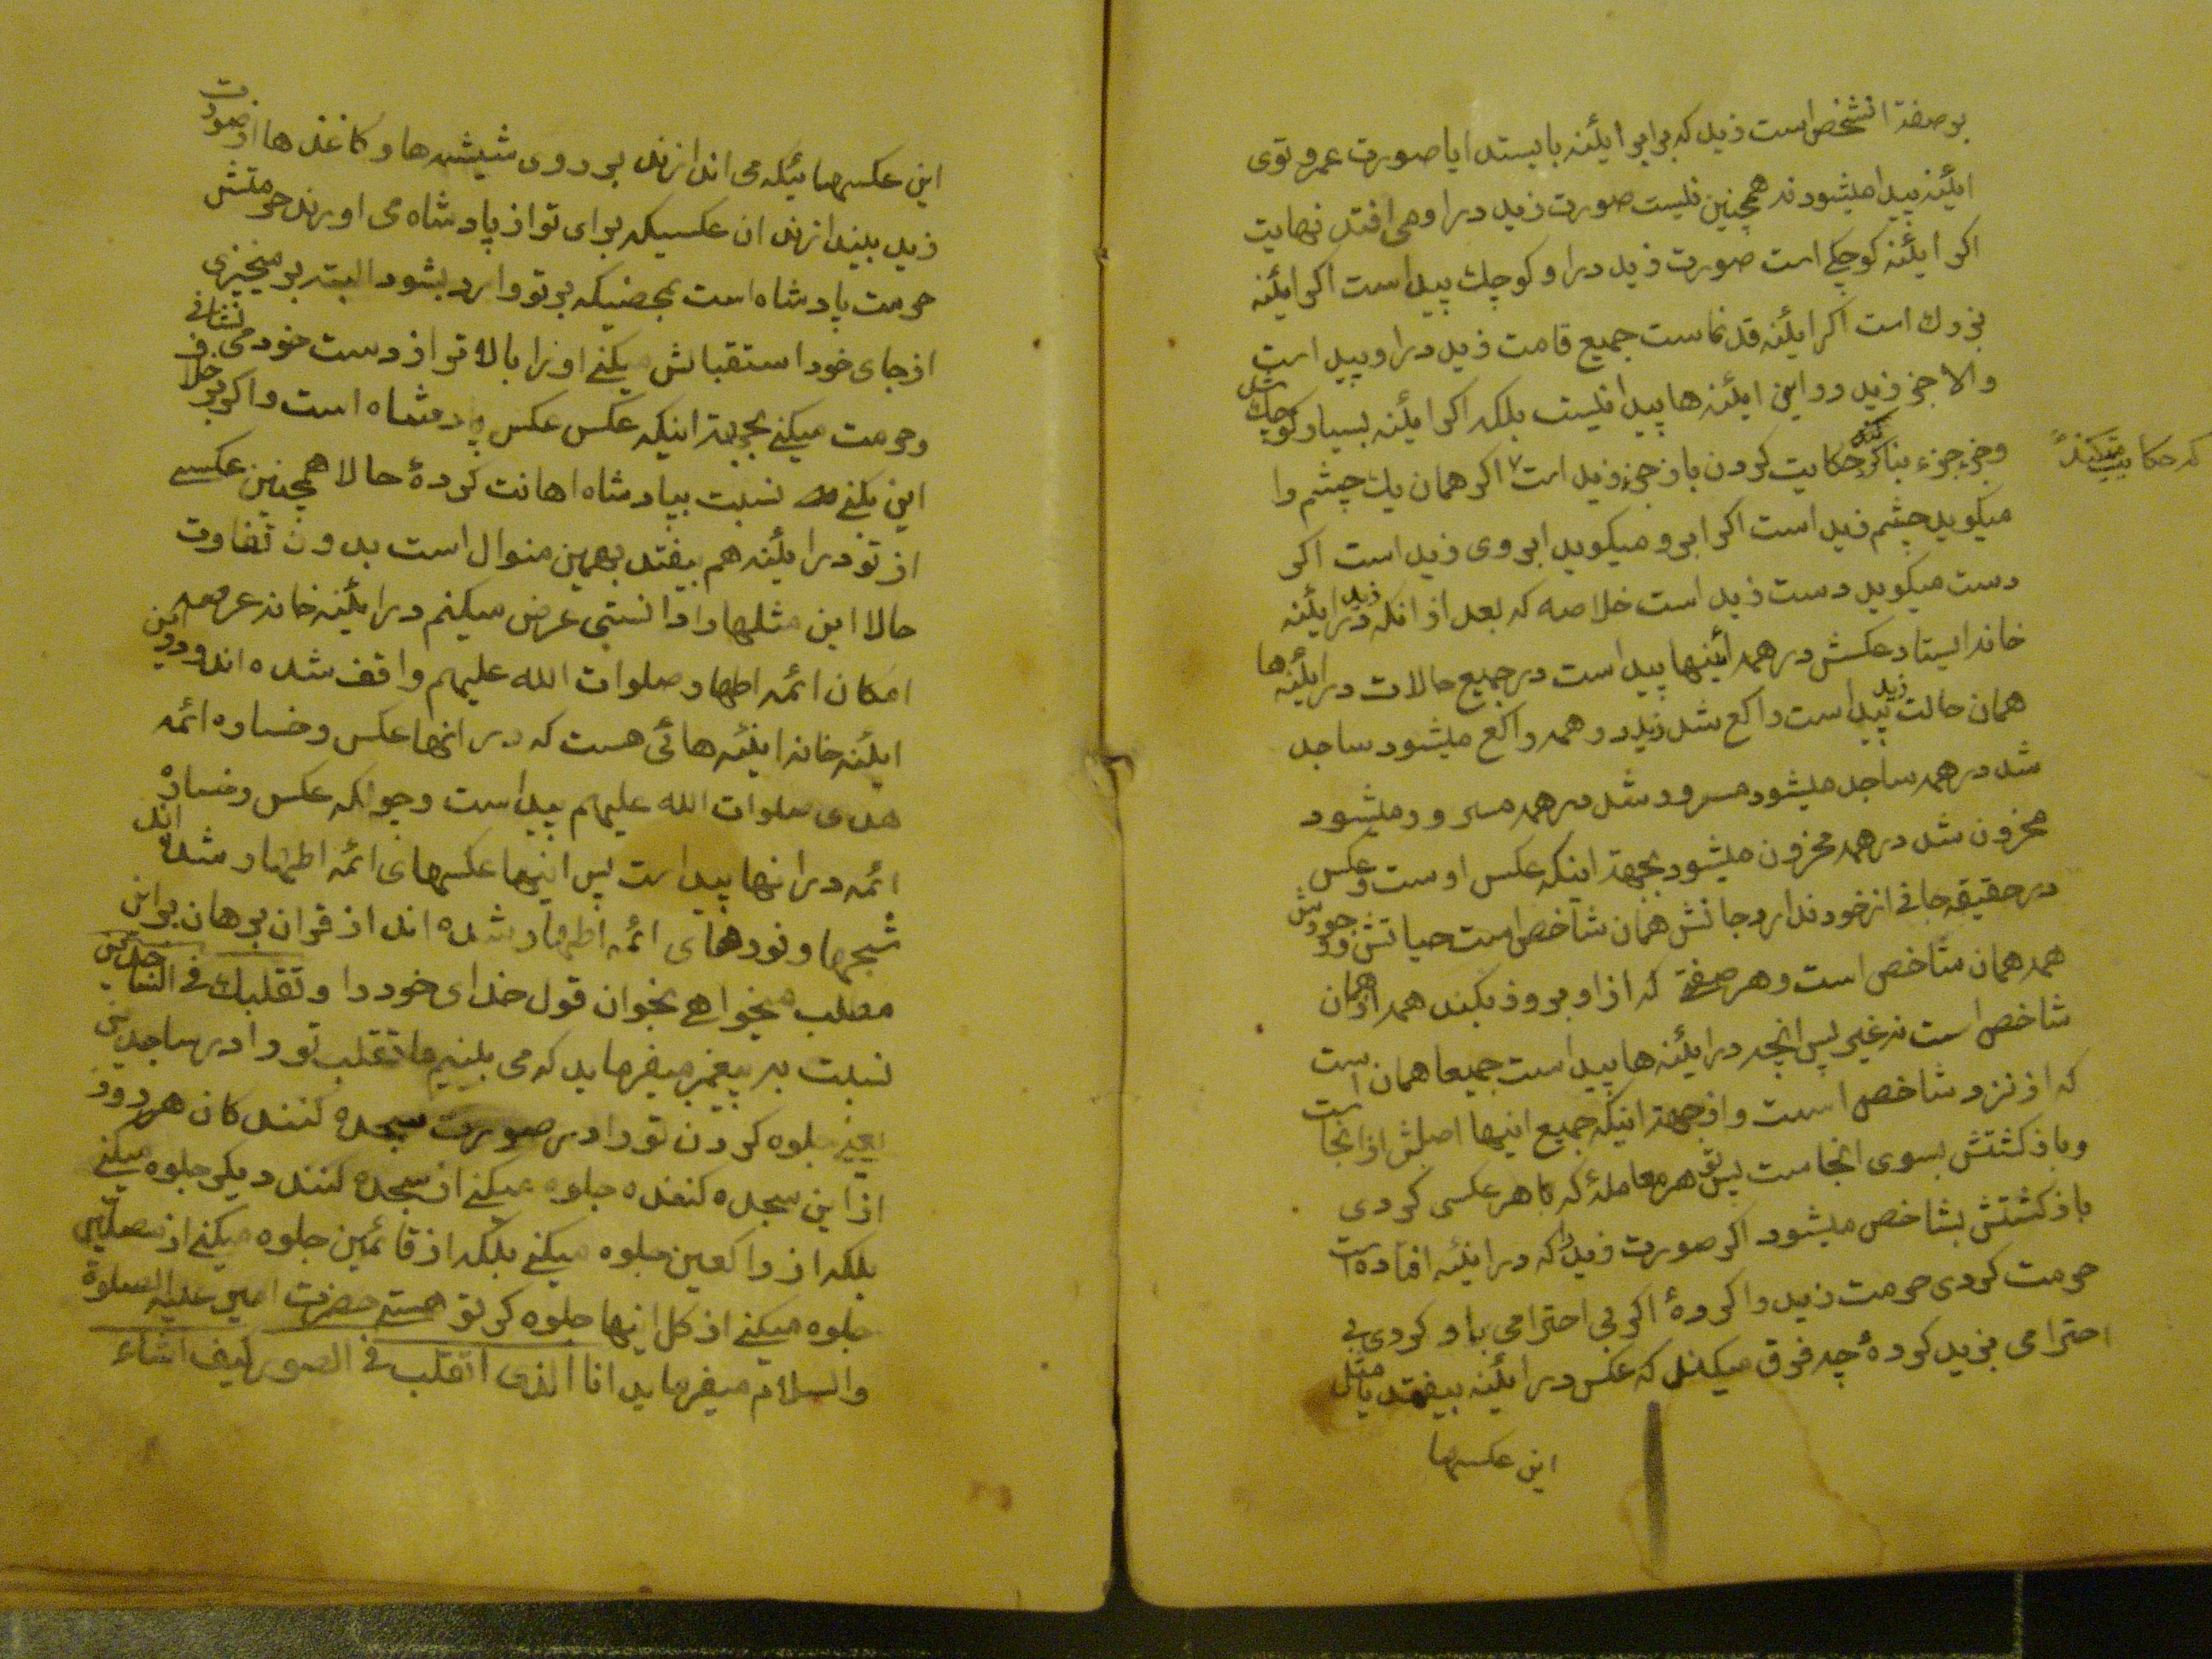 بر صفة انشخص است زید که برابر ایئنه بایستد ایا صورت عمرو توی
ایئنه پیدا میشود نه همچنین نیست صورت زید در او می افتد نهایت
اکر ایئنه کوچکی است صورت زید در او کوچک پیدا است اکر ایئنه
بزرک است اکر ایئنه قد نماست جمیع قامت زید در او پیدا است
والا جز زید در این ایئنه ها پیدا نیست بلکه اکر ایئنه بسیار کوچک شد
وجزء جزء بنا کرد حکایت کردن باز جزء زید است اکر همان یک چشم را
که حکایت میکند
میکوید چشم زید است اکر ابرو میکوید ابروی زید است اکر
دست میکوید دست زید است خلاصه که بعد از انکه زید در ایئنه
خانه ایستاد عکسش در همه ائینها پیدا است در جمیع حالات در ایئنه ها
همان حالت زید پیدا است راکع شد زید در همه راکع میشود ساجد
شد در همه ساجد میشود مسرور شد در همه مسرور میشود
محزون شد در همه محزون میشود بجهة اینکه عکس اوست و عکس
در حقیقه جانی از خود ندارد جانش همان شاخص است حیاتش وجودش
همه همان شاخص است و هر صفتی که از او بروز بکند همه از همان
شاخص است نه غیر پس انچه در ایئنه ها پیدا است جمیعا همان است
که از نزد شاخص است و از جهة اینکه جمیع اینها اصلش از انجا است
و باز کشتش بسوی انجا ست پس تو هر معاملهٔ که با هر عکسی کردی
باز کشتش بشاخص میشود اکر صورت زید را که در ایئنه افتاده است
حرمت کردی حرمت زید را کردهٔ اکر بی احترامی باو کردی بی
احترامی بزید کردهٔ چه فرق میکند که عکس در ایئنه بیفتد یا مثل
این عکسها
این عکسهائیکه می اندازند بر روی شیشه ها و کاغذ ها از صورت
زید بیندازند ان عکسیکه برای تو از پادشاه می اورند حرمتش
حرمت پادشاه است بمحضیکه بر تو وارد بشود البته بر میخیزی
از جای خود استقبالش میکنی اورا بالاتر از دست خود می نشانی
و حرمت میکنی بجهة اینکه عکس عکس پادشاه است و اکر بر خلاف
این بکنی نسبت بپادشاه اهانت کردهٔ حالا همچنین عکسی
از تو در ایئنه هم بیفتد بهمین منوال است بدون تفاوت
حالا این مثلها را دانستی عرض میکنم در ایئنه خانه عرصه
امکان ائمه اطهار صلوات الله علیهم واقف شده اند و در این
ایئنه خانه ایئنه هائی هست که در انها عکس رخساره ائمه
هدی صلوات الله علیهم پیدا است و چونکه عکس رخساره
ائمه در انها پیدا است پس اینها عکسهای ائمه اطهار شده اند
شبحها و نورهای ائمه اطهار شده اند از قران برهان بر این
مطلب میخواهی بخوان قول خدای خود را وتقلبک فی الساجدین
نسبت به پیغمبر میفرماید که می بینیم ما تقلب تو را در ساجدین
یعنی جلوه کردن تو را در صورت سجده کنندکان هر روز
از این سجده کننده جلوه میکنی از سجده کننده دیکر جلوه میکنی
بلکه از راکعین جلوه میکنی بلکه از قائمین جلوه میکنی از مصلین
جلوه میکنی از کل اینها جلوه کر تو هستی حضرت امیر علیه الصلوة
والسلام میفرماید انا الذی اتقلب فی الصور کیف اشاء